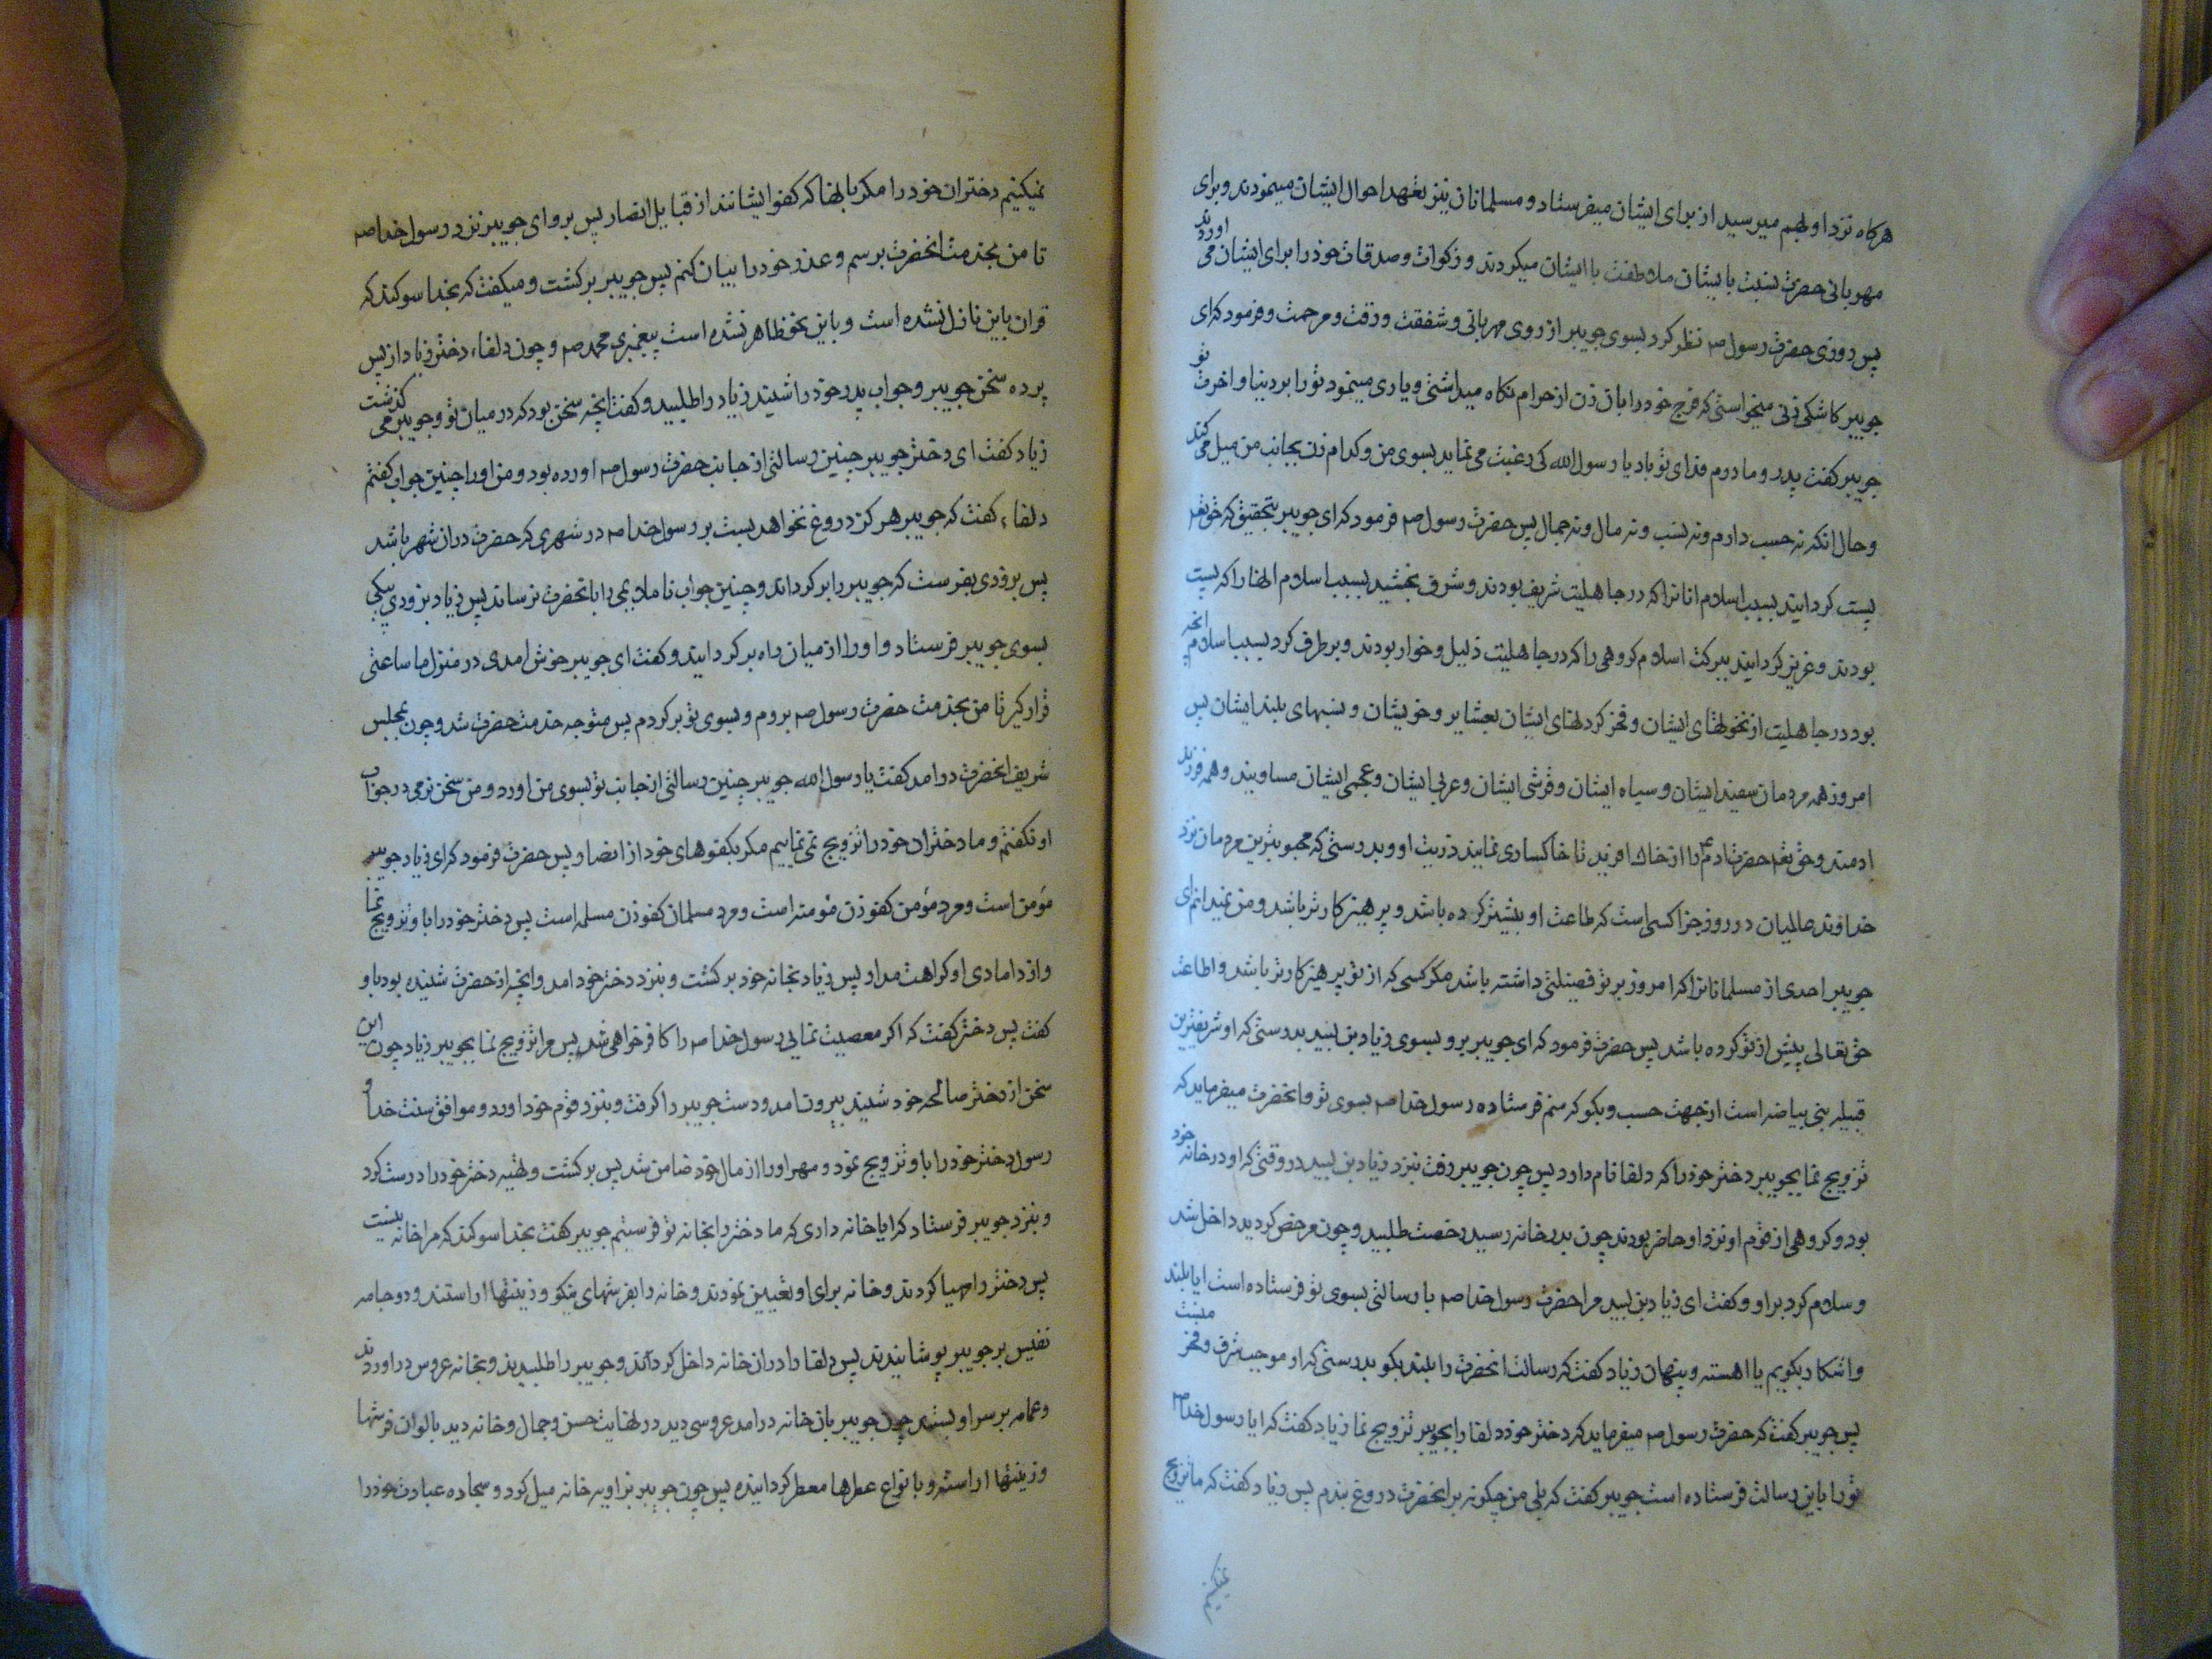 هرکاه نزد او بهم میرسید از برای ایشان میفرستاد و مسلمانان نیز تعهد احوال ایشان مینمودند و برای
مهربانی حضرت نسبت بایشان ملاطفت باایشان میکردند و زکوات و صدقات خود را برای ایشان می اوردند
پس روزی حضرت رسول صم نظر کرد بسوی جویبر از روی مهربانی و شفقت و رقت و مرحمت و فرمود که ای
جویبر کاشکی زنی میخواستی که فرج خود را بان زن از حرام نکاه میداشتی و یاری مینمود تو را بر دنیا و اخرت تو
جویبر کفت پدر و مادرم فدای تو باد یا رسول الله کی رغبت می نماید بسوی من و کدام زن بجانب من میل می کند
و حال انکه نه حسب دارم و نه نسب و نه مال و نه جمال پس حضرت رسول صم فرمود که ای جویبر بتحقیق که حق تعم
پست کردانید بسبب اسلام انانرا که در جاهلیت شریف بودند و شرف بخشید بسبب اسلام انها را که پست
بودند و عزیز کردانید ببرکت اسلام کروهی را که در جاهلیت ذلیل و خوار بودند و برطرف کرد بسبب اسلام انچه
بود در جاهلیت از نخوتهای ایشان و فخر کردنهای ایشان بعشایر و خویشان و نسبهای بلند ایشان پس
امروز همه مردمان سفید ایشان و سیاه ایشان و قرشی ایشان و عربی ایشان و عجمی ایشان مساویند و همه فرزند
ادمند و حق تعم حضرت ادم ع را از خاک افرید تا خاکساری نمایند ذریت او و بدرستی که محبوبترین مردمان نزد
خداوند عالمیان در روز جزا کسی است که طاعت او بیشتر کرده باشد و پرهیزکارتر باشد و من نمیدانم ای
جویبر احدی از مسلمانانرا که امروز بر تو فضیلتی داشته باشد مکر کسی که از تو پرهیزکارتر باشد و اطاعت
حق تعالی بیش از تو کرده باشد پس حضرت فرمود که ای جویبر برو بسوی زیاد بن لبید بدرستی که او شریفترین
قبیله بنی بیاضه است از جهت حسب و بکو که منم فرستاده رسول خدا صم بسوی تو و انحضرت میفرماید که
تزویج نما بجویبر دختر خود را که دلفا نام دارد پس چون جویبر رفت بنزد زیاد بن لبید در وقتی که او در خانه خود
بود و کروهی از قوم او نزد او حاضر بودند چون بدر خانه رسید رخصت طلبید و چون مرخص کردید داخل شد
و سلام کرد بر او و کفت ای زیاد بن لبید مرا حضرت رسول خدا صم با رسالتی بسوی تو فرستاده است ایا بلند
و اشکار بکویم یا اهسته و پنهان زیاد کفت که رسالت انحضرت را بلند بکو بدرستی که او موجب شرف و فخر منست
پس جویبر کفت که حضرت رسول صم میفرماید که دختر خود دلفا را بجویبر تزویج نما زیاد کفت که ایا رسول خدا صم
تو را باین رسالت فرستاده است جویبر کفت که بلی من چکونه بر انحضرت دروغ بندم پس زیاد کفت که ما تزویج
نمیکنیم
نمیکنیم دختران خود را مکر بانها که کفو ایشانند از قبایل انصار پس برو ای جویبر نزد رسول خدا صم
تا من بخدمت انحضرت برسم و عذر خود را بیان کنم پس جویبر برکشت و میکفت که بخدا سوکند که
قران باین نازل نشده است و باین نحو ظاهر نشده است پیغمبری محمد صم و چون دلفاء دختر زیاد از پس
پرده سخن جویبر و جواب پدر خود را شنید زیاد را طلبید و کفت انچه سخن بود که در میان تو و جویبر می کذشت
زیاد کفت ای دختر جویبر چنین رسالتی از جانب حضرت رسول صم اورده بود و من او را چنین جواب کفتم
دلفاء کفت که جویبر هرکز دروغ نخواهد بست بر رسول خدا صم در شهری که حضرت در ان شهر باشد
پس بزودی بفرست که جویبر را برکرداند و چنین جواب ناملایمی را بانحضرت نرساند پس زیاد بزودی پیکی
بسوی جویبر فرستاد و او را از میان راه برکردانید و کفت ای جویبر خوش امدی در منزل ما ساعتی
قرار کیر تا من بخدمت حضرت رسول صم بروم و بسوی تو برکردم پس متوجه خدمت حضرت شد و چون بمجلس
شریف انحضرت درامد کفت یا رسول الله جویبر چنین رسالتی از جانب تو بسوی من اورد و من سخن نرمی در جواب
او نکفتم و ما دختران خود را تزویج نمی نماییم مکر بکفوهای خود از انصار پس حضرت فرمود که ای زیاد جویبر
مؤمن است و مرد مؤمن کفو زن مؤمنه است و مرد مسلمان کفو زن مسلمه است پس دختر خود را باو تزویج نما
و از دامادی او کراهت مدار پس زیاد بخانه خود برکشت و بنزد دختر خود امد و انچه از حضرت شنیده بود باو
کفت پس دختر کفت که اکر معصیت نمایی رسول خدا صم را کافر خواهی شد پس مرا تزویج نما بجویبر زیاد چون این
سخن از دختر صالحه خود شنید بیرون امد و دست جویبر را کرفت و بنزد قوم خود اورد و موافق سنت خدا و
رسول دختر خود را باو تزویج نمود و مهر او را از مال خود ضامن شد پس برکشت و تهیه دختر خود را درست کرد
و بنزد جویبر فرستاد که ایا خانه داری که ما دختر را بخانه تو فرستیم جویبر کفت بخدا سوکند که مرا خانه نیست
پس دختر را مهیا کردند و خانه برای او تعیین نمودند و خانه را بفرشهای نیکو و زینتها اراستند و دو جامه
نفیس بر جویبر پوشانیدند پس دلفا را در ان خانه داخل کردند و جویبر را طلبیدند و بخانه عروس دراوردند
و عمامه بر سر او بستند چون جویبر بان خانه درامد عروسی دید در نهایت حسن و جمال و خانه دید بالوان فرشها
و زینتها اراسته و بانواع عطرها معطر کردانیده پس چون جویبر بزاویه خانه میل کرد و سجاده عبادت خود را